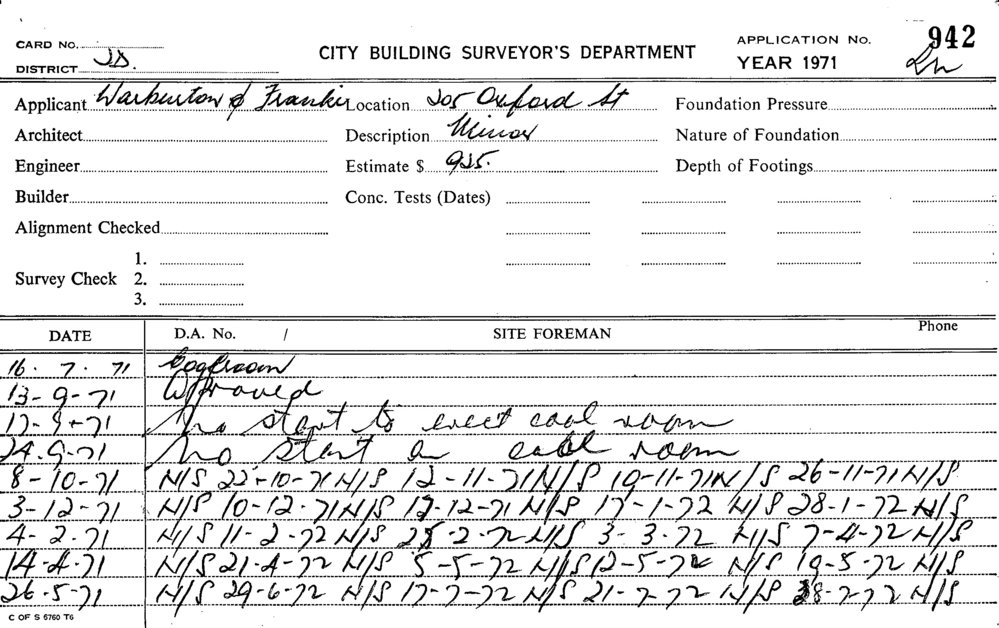 CARD No.
DISTRICT
CITY BUILDING SURVEYOR'S DEPARTMENT
APPLICATION No. 942
YEAR 1971
Applicant Warburton & Franki Location 205 Oxford St Foundation Pressure
Architect Description Minor Nature of Foundation
Engineer Estimate $ 925. Depth of Footings
Builder Conc. Tests (Dates)
Alignment Checked
1.
Survey Check 2.
3.
DATE D.A. No. / SITE FOREMAN Phone
16. 7. 71 Coolroom
13-9-71 Approved
17-9-71 No start to erect cool room
24.9.71 No start on cool room
8-10-71 N/S 22-10-71 N/S 12-11-71 N/S 19-11-71 N/S 26-11-71 N/S
3-12-71 N/S 10-12-71 N/S 17-12-71 N/S 17-1-72 N/S 28-1-72 N/S
4-2-71 N/S 11-2-72 N/S 25-2-72 N/S 3-3-72 N/S 7-4-72 N/S
14-4-71 N/S 21-4-72 N/S 5-5-72 N/S 12-5-72 N/S 19-5-72 N/S
26-5-71 N/S 29-6-72 N/S 17-7-72 N/S 21-7-72 N/S 28-7-72 N/S
C OF S 5760 T6